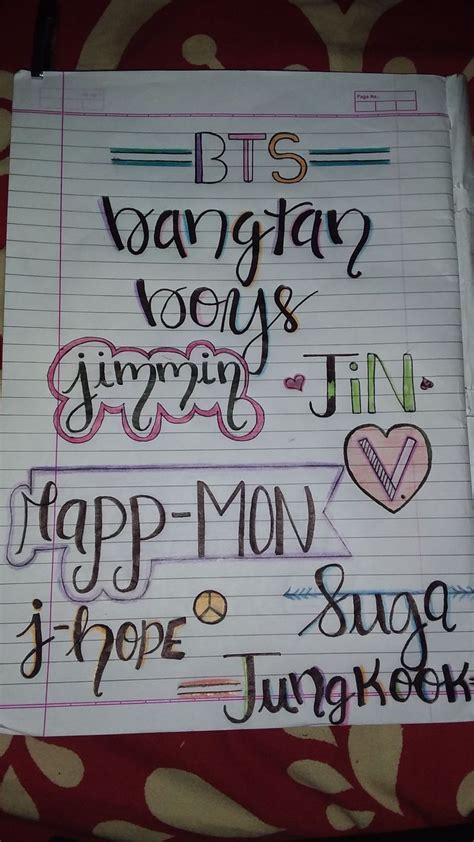 Page No.:
BTS
bangtan
boys
jimmin
JiN
V
Rapp-MON
j-hope
Suga
Jungkook